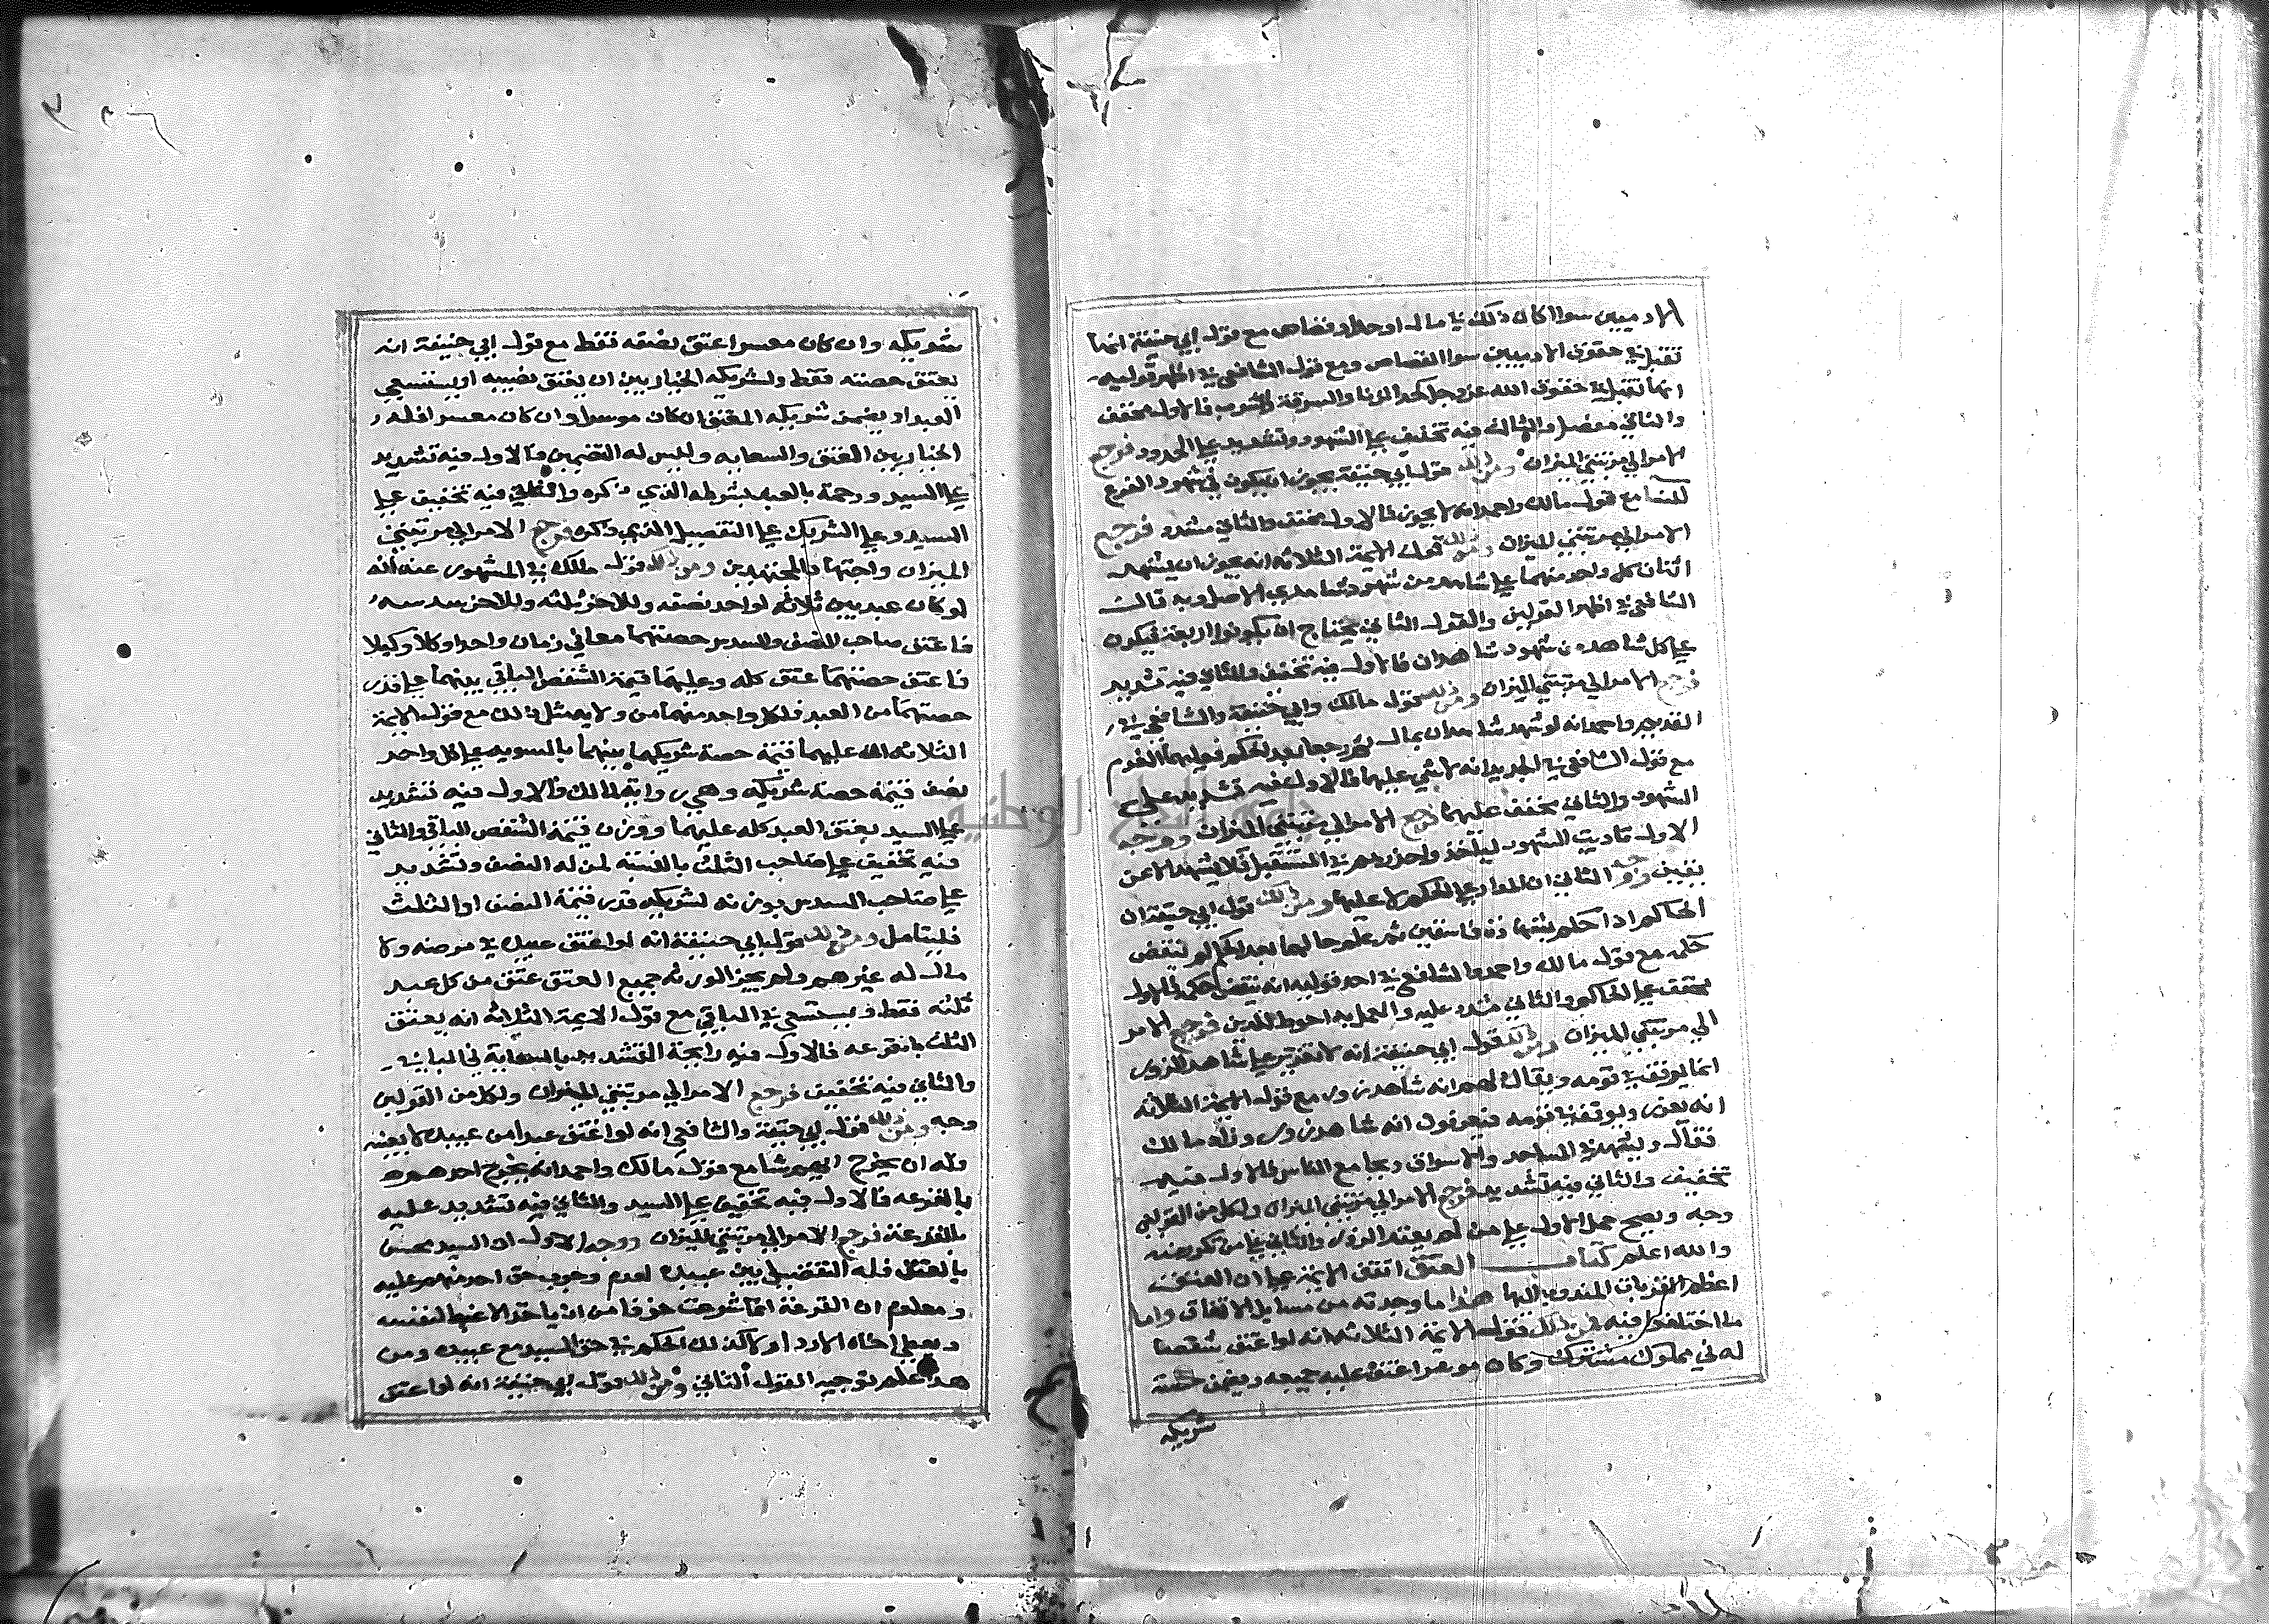 الادميين سوا كان ذلك في مال او حد او قصاص مع قول ابي حنيفة انها
تقبل في حقوق الادميين سوا القصاص ومع قول الشافعي في اظهر قوليه
انها تقبل في حقوق الله عز وجل كحد الزنا والسرقة والشرب فالاول مخفف
والثاني مفصل والثالث فيه تخفيف علي الشهود وتشديد علي الحدود فرجع
الامر الي مرتبتي الميزان ومن ذلك قول ابي حنيفة يجوز ان يكون في شهود الفرع
للنسا مع قول مالك واحمد انه لا يجوز فالاول مخفف والثاني مشدد فرجع
الامر الي مرتبتي الميزان ومن ذلك قول الايمة الثلاثة انه يجوز ان يشهد
اثنان كل واحد منهما علي شاهد من شهود شاهدي الاصل وبه قالـ
الشافعي في اظهر القولين والقول الثاني يحتاج ان يكونوا اربعة فيكون
علي كل شاهد من شهود شاهدان فالاول فيه تخفيف والثاني فيه تشديد
فرجع الامر الي مرتبتي الميزان ومن ذلك قول مالك وابي حنيفة والشافعي في
القديم واحمد انه لو شهد شاهدان بمال ثم رجعا بعد الحكم فعليهما الغرم
مع قول الشافعي في الجديد انه لا شي عليهما فالاول فيه تشديد علي
الشهود والثاني مخفف عليهما فرجع الامر الي مرتبتي الميزان ووجه
الاول تاديب الشهود لياخذ واحذرهم في المستقبل فلا يشهد الا عن
يقين ووجه الثاني ان المدار علي الحكم لا عليها ومن ذلك قول ابي حنيفة ان
الحاكم اذا حكم بشهادة فاسقين ثم علم حالهما بعد الحكم لم ينقض
حكمه مع قول مالك واحمد والشافعي في احد قوليه انه ينقض حكمه فالاول
مخفف علي الحاكم والثاني مشدد عليه والعمل به احوط للدين فرجع الامر
الي مرتبتي الميزان ومن ذلك قول ابي حنيفة انه لا تعزير علي شاهد الزور
انما يوقف في قومه ويقال لهم انه شاهد زور مع قول الايمة الثلاثة
انه يعزر ويوقف في قومه فيعرفون انه شاهد زور وزاد مالك
فقال ويشهر في المساجد والاسواق ومجامع الناس فالاول فيه
تخفيف والثاني فيه تشديد فرجع الامر الي مرتبتي الميزان ولكل من القولين
وجه ويصح حمل الاول علي من لم يعتد الزور والثاني علي من تكرر منه
والله اعلم كتاب العتق اتفق الايمة علي ان العتق من
اعظم القربات المندوب اليها هذا ما وجدته من مسايل الاتفاق واما
ما اختلفوا فيه فمن ذلك قول الايمة الثلاثة انه لو اعتق شقصا
له في مملوك مشترك وكان موسرا عتق عليه جميعه ويضمن حصة
شريكه
شريكه وان كان معسرا عتق نصفه فقط مع قول ابي حنيفة انه
يعتق حصته فقط ولشريكه الخيار بين ان يعتق نصيبه او يستسعي
العبد او يضمن شريكه المعتق ان كان موسرا وان كان معسرا فله
الخيار بين العتق والسعايه وليس له التضمين فالاول فيه تشديد
علي السيد ورحمة بالعبد بشرطه الذي ذكره والثاني فيه تخفيف علي
السيد وعلي الشريك علي التفصيل الذي ذكره فرجع الامر الي مرتبتي
الميزان واجتهاد المجتهدين ومن ذلك قول مالك في المشهور عنه انه
لو كان عبد بين ثلاثة لواحد نصفه وللاخر ثلثه وللاخر سدسه
فاعتق صاحب النصف والسدس حصتهما معا في زمان واحد او كلا وكيلا
فاعتق حصتهما عتق كله وعليهما قيمة الشقص الباقي بينهما علي قدر
حصتهما من العبد فلكل واحد منهما من ولايه مثل ذلك مع قول الايمة
الثلاثة ان عليهما قيمة حصة شريكهما بينهما بالسويه علي كل واحد
نصف قيمة حصة شريكه وهي رواية لمالك فالاول فيه تشديد
علي السيد بعتق العبد كله عليهما ووزن قيمة الشقص الباقي والثاني
فيه تخفيف علي صاحب الثلث بالنسبة لمن له النصف وتشديد
علي صاحب السدس بوزنه لشريكه قدر قيمة النصف او الثلث
فليتامل ومن ذلك قول ابي حنيفة انه لو اعتق عبيده في مرضه ولا
مال له غيرهم ولم يجز الورثه جميع العتق عتق من كل عبد
ثلثه فقط ويستسعي في الباقي مع قول الايمة الثلاثة انه يعتق
الثلث بالقرعه فالاول فيه رايحة التشديد بالسعاية في الباقي
والثاني فيه تخفيف فرجع الامر الي مرتبتي الميزان ولكل من القولين
وجه ومن ذلك قول ابي حنيفة والشافعي انه لو اعتق عبدا من عبيده لا بعينه
فله ان يخرج ايهم شا مع قول مالك واحمد انه يخرج احدهم
بالقرعه فالاول فيه تخفيف علي السيد والثاني فيه تشديد عليه
بالقرعة فرجع الامر الي مرتبتي الميزان ووجه الاول ان السيد محسن
بالعتق فله التفضيل بين عبيده لعدم وجوب حق احد منهم عليه
ومعلوم ان القرعة انما شرعت خوفا من ان ياخذ الاغبط لنفسه
ويعطي اخاه الاردا ولا كذلك الحكم في حق السيد مع عبيده ومن
هذا علم توجيه القول الثاني ومن ذلك قول ابي حنيفة انه لو اعتق
جامعة النجاح الوطنية